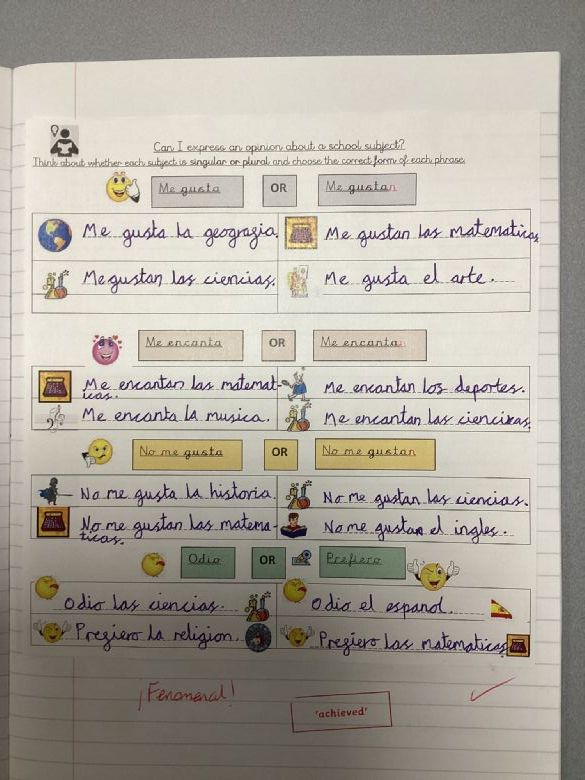 Can I express an opinion about a school subject?
Think about whether each subject is singular or plural and choose the correct form of each phrase.
Me gusta OR Me gustan
Me gusta la geograzia. Me gustan las matematicas
Me gustan las ciencias. Me gusta el arte.
Me encanta OR Me encantan
Me encantan las matemat- Me encantan los deportes.
icas.
Me encanta la musica. Me encantan las ciencias.
No me gusta OR No me gustan
No me gusta la historia. No me gustan las ciencias.
No me gustan las matema- No me gustan el ingles.
ticas.
Odio OR Prefiero
Odio las ciencias. Odio el espanol.
Pregiero la religion. Pregiero las matematicas
¡Fenomenal!
'achieved'